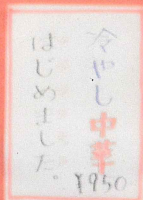 冷やし中華
はじめました。
¥950